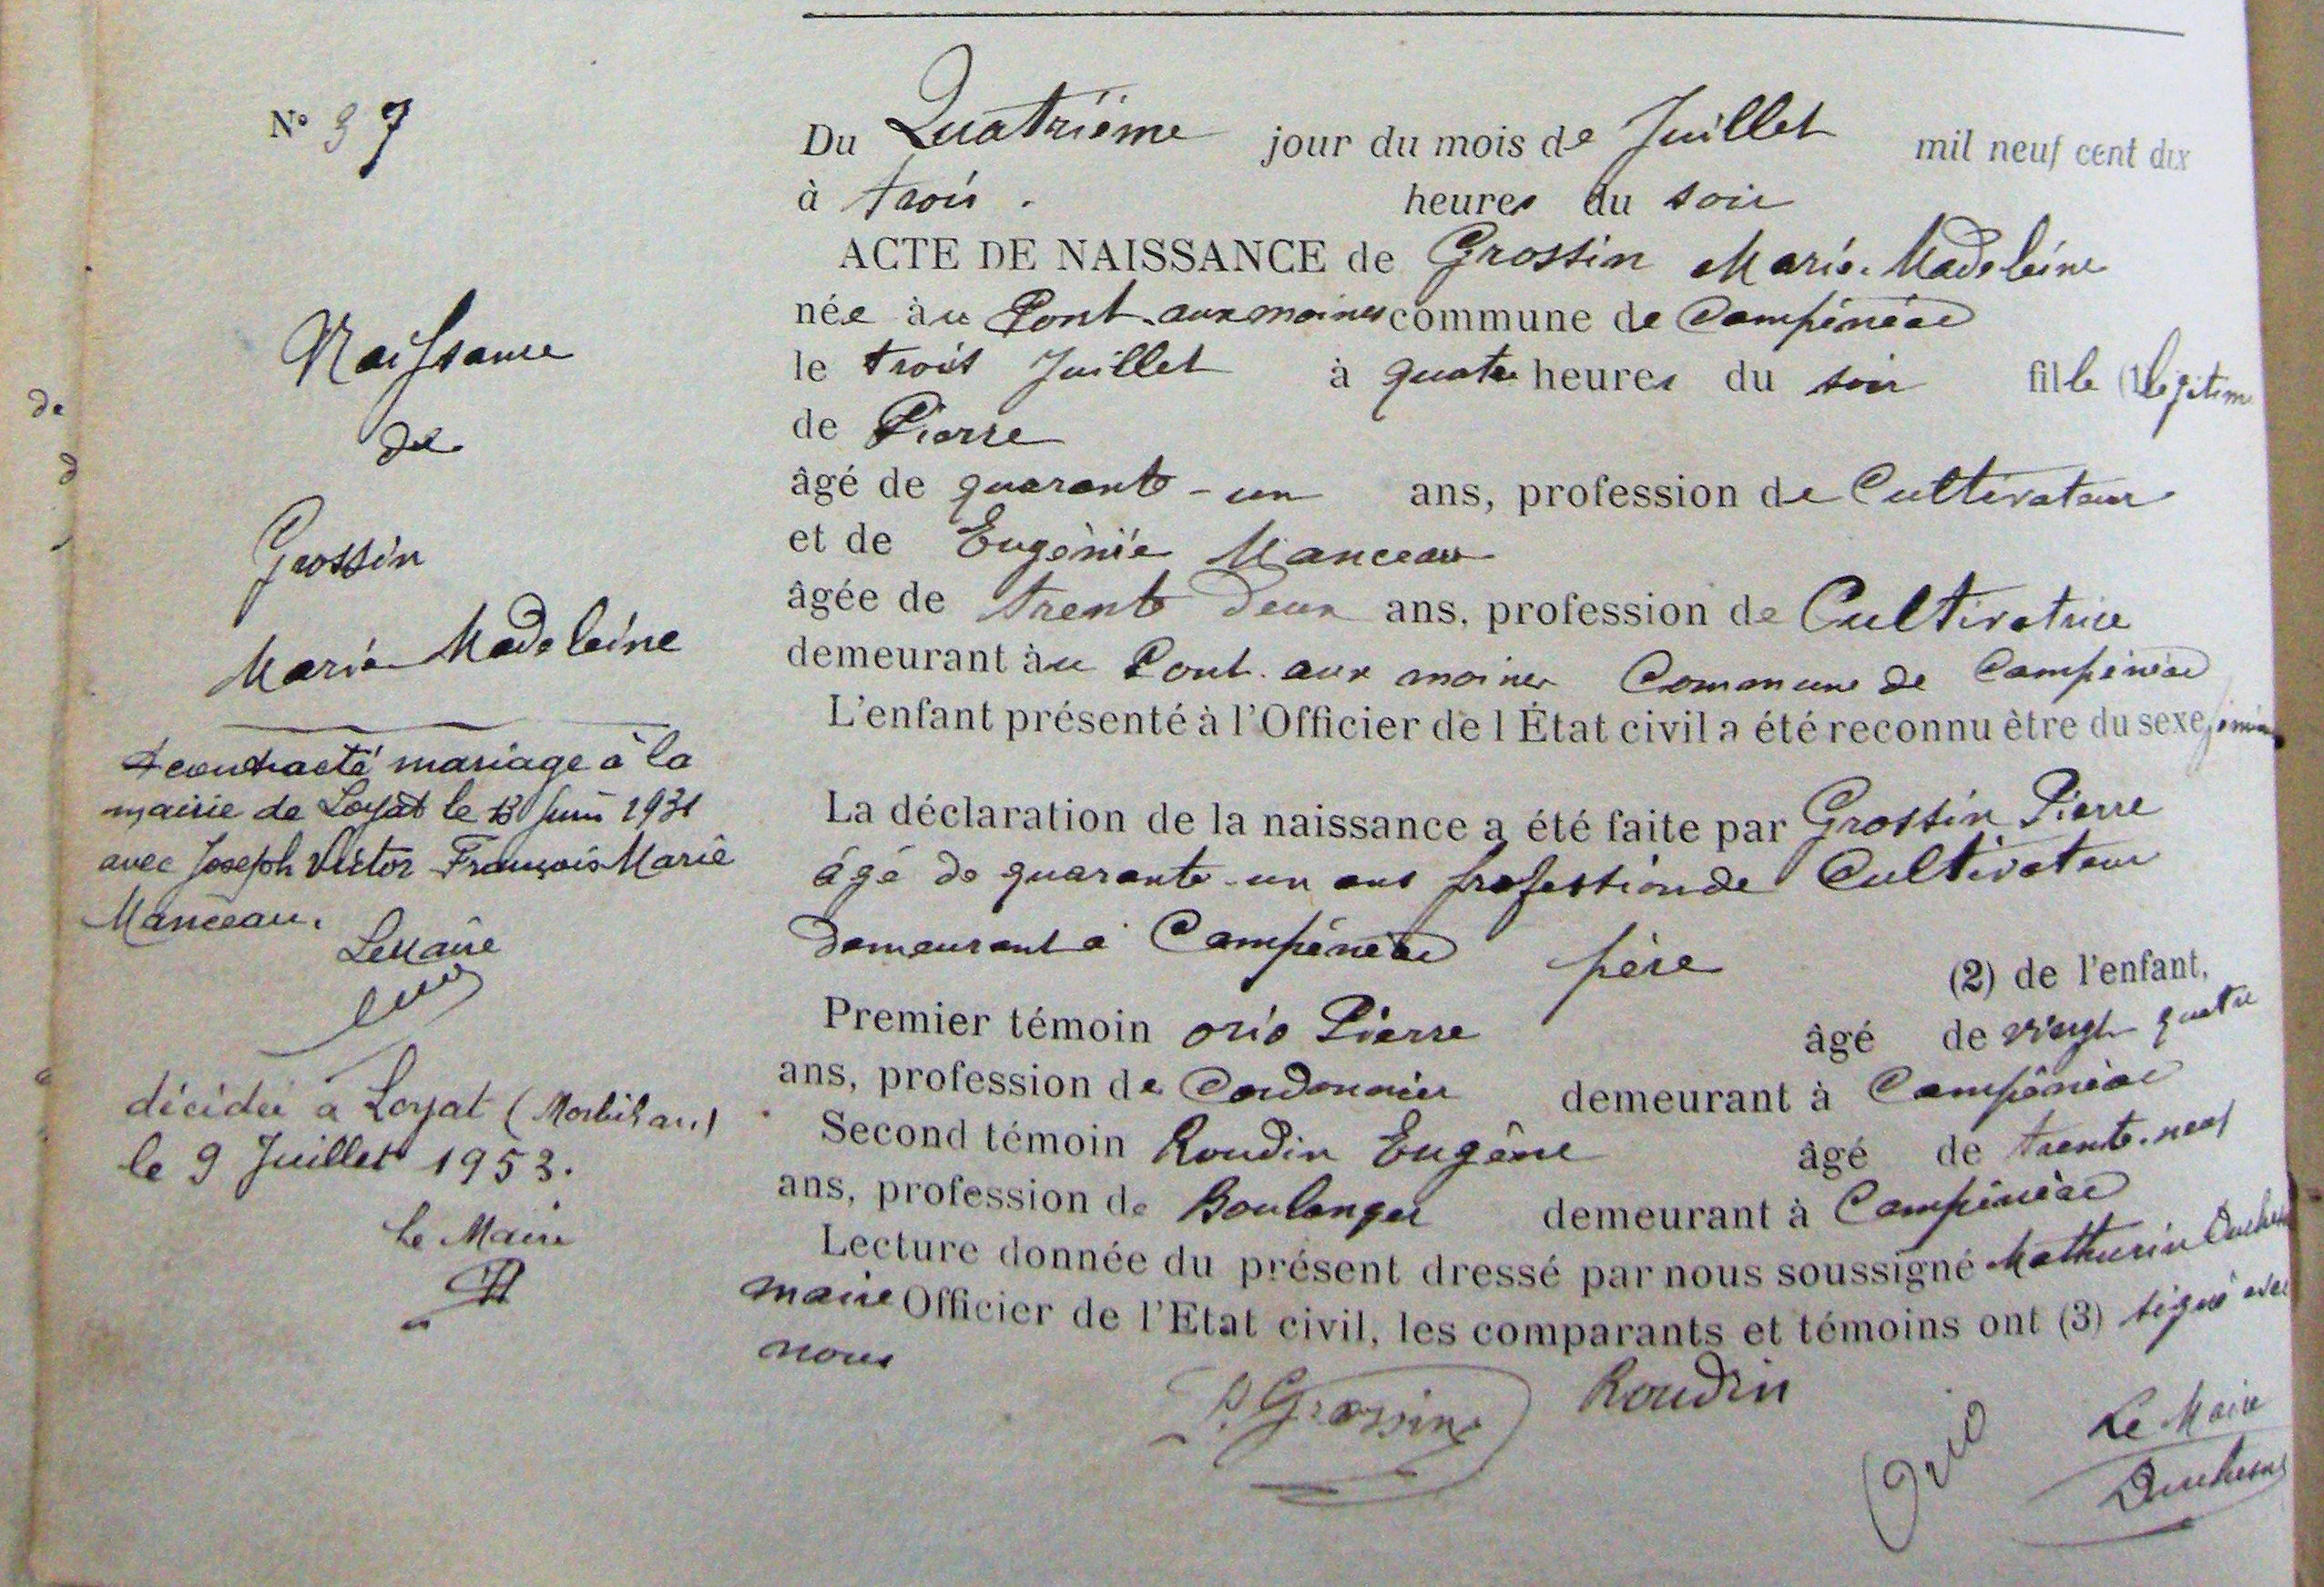 N° 37
Naissance
de
Grossin
Marie Madeleine
A contracté mariage à la
mairie de Loyat le 13 Juin 1931
avec Joseph Victor François Marie
Manceau.
Le Maire
décédée à Loyat (Morbihan)
le 9 Juillet 1953.
Le Maire
de
Du Quatrième jour du mois de Juillet mil neuf cent dix
à trois heures du soir
ACTE DE NAISSANCE de Grossin Marie Madeleine
née àu Pont-aux moines commune de Campénéac
le trois Juillet à quatre heures du soir fille (1) légitime
de Pierre
âgé de quarante-un ans, profession de Cultivateur
et de Eugénie Manceau
âgée de trente deux ans, profession de Cultivatrice
demeurant àu Pont aux moines Commune de Campénéac
L'enfant présenté à l'Officier de l État civil a été reconnu être du sexe féminin
La déclaration de la naissance a été faite par Grossin Pierre
âgé de quarante-un ans profession de Cultivateur
demeurant à Campénéac père (2) de l'enfant,
Premier témoin Orio Pierre âgé de vingt quatre
ans, profession de Cordonnier demeurant à Campénéac
Second témoin Roudin Eugène âgé de trente-neuf
ans, profession de Boulanger demeurant à Campénéac
Lecture donnée du présent dressé par nous soussigné Mathurin Duchesne
maire Officier de l'Etat civil, les comparants et témoins ont (3) signé avec
nous
P. Grossin Roudin Orio Le Maire
Duchesne